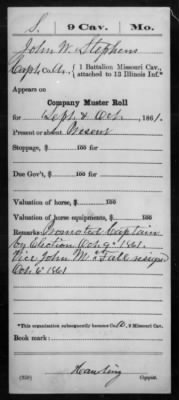 S. 9 Cav. Mo.
John W. Stephens
Capt., Co. A, { 1 Battalion Missouri Cav., attached to 13 Illinois Inf.*
Appears on
Company Muster Roll
for Sept & Oct, 1861.
Present or absent Present
Stoppage, $ 100 for
Due Gov't, $ 100 for
Valuation of horse, $ 100
Valuation of horse equipments, $ 100
Remarks: Promoted Captain
by Election Oct 9" 1861.
Vice John McFall resigned
Oct 6" 1861
*This organization subsequently became Co. , 9 Missouri Cav.
Book mark:
(358) Copyist.